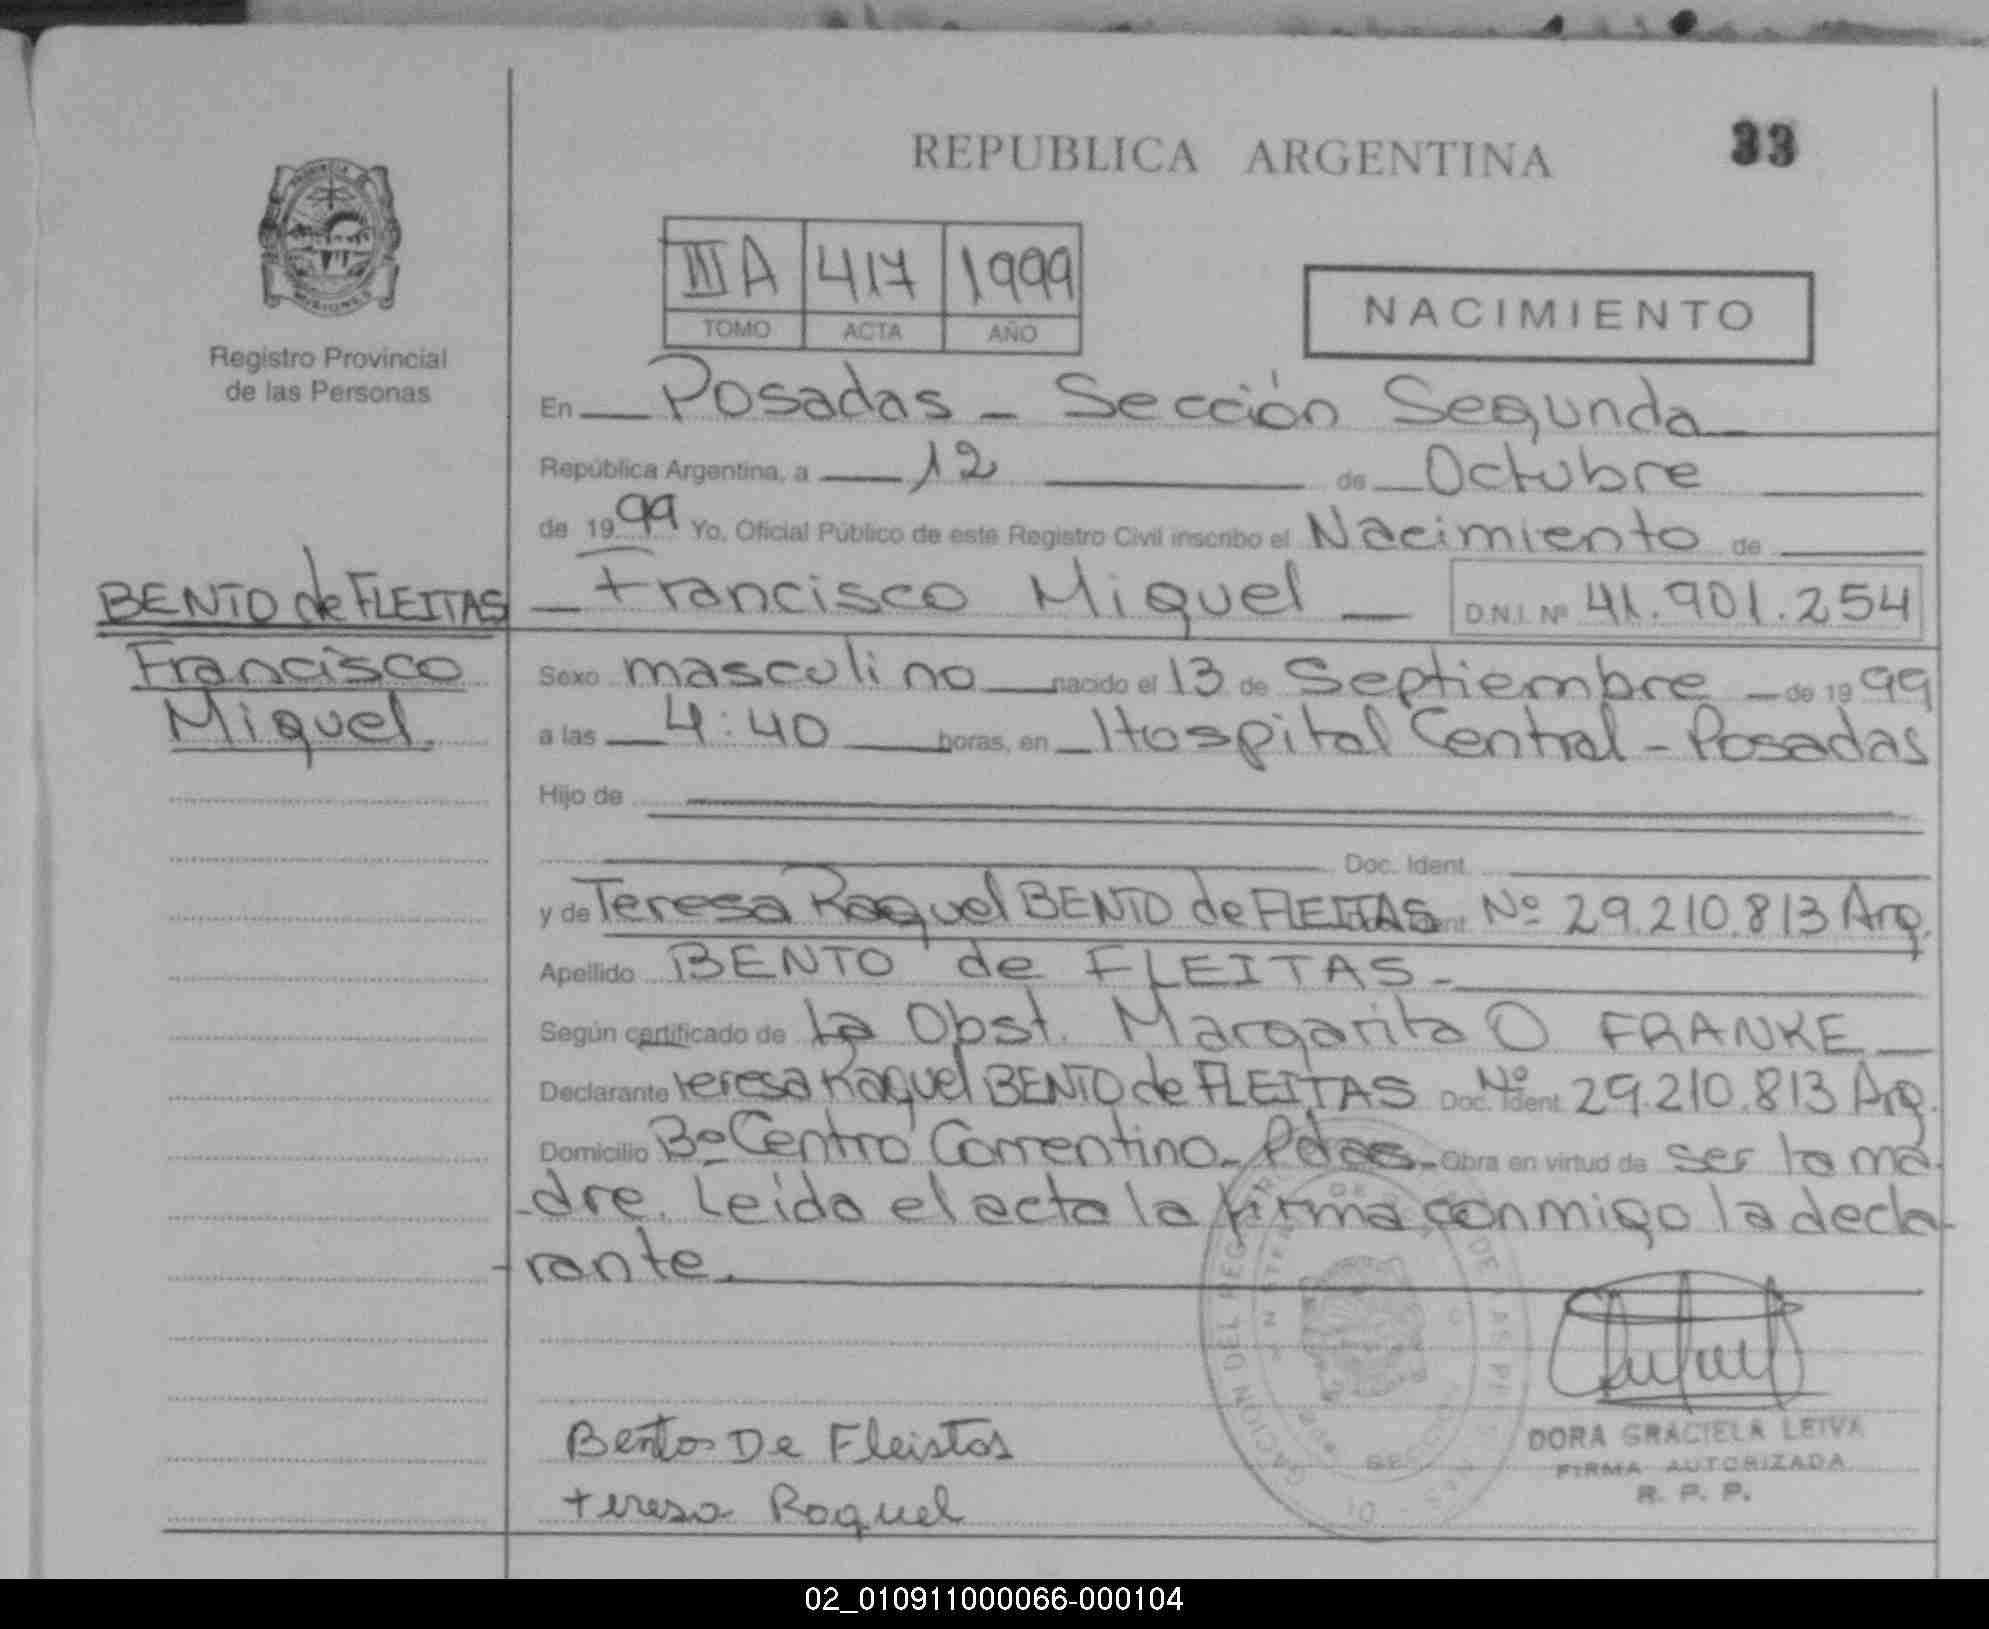 REPUBLICA ARGENTINA
33
MISIONES
Registro Provincial
de las Personas
III A 417 1999
TOMO ACTA AÑO
NACIMIENTO
En Posadas - Sección Segunda
República Argentina, a 12 de Octubre
de 1999 Yo, Oficial Público de este Registro Civil inscribo el Nacimiento de
BENTO de FLEITAS
Francisco
Miguel.
Francisco Miguel D.N.I. Nº 41.901.254
Sexo masculino nacido el 13 de Septiembre de 1999
a las 4:40 horas, en Hospital Central - Posadas
Hijo de
Doc. Ident.
y de Teresa Raquel BENTO de FLEITAS Nº 29.210.813 Arg.
Apellido BENTO de FLEITAS -
Según certificado de la Obst. Margarita O FRANKE
Declarante Teresa Raquel BENTO de FLEITAS Doc. Ident. Nº 29.210.813 Arg.
Domicilio Bº Centro Correntino - Pdas - Obra en virtud de ser la ma-
dre. Leida el acta la firma conmigo la decla-
rante.
Bentos De Fleistas
teresa Raquel
DORA GRACIELA LEIVA
FIRMA AUTORIZADA
R. P. P.
02_010911000066-000104